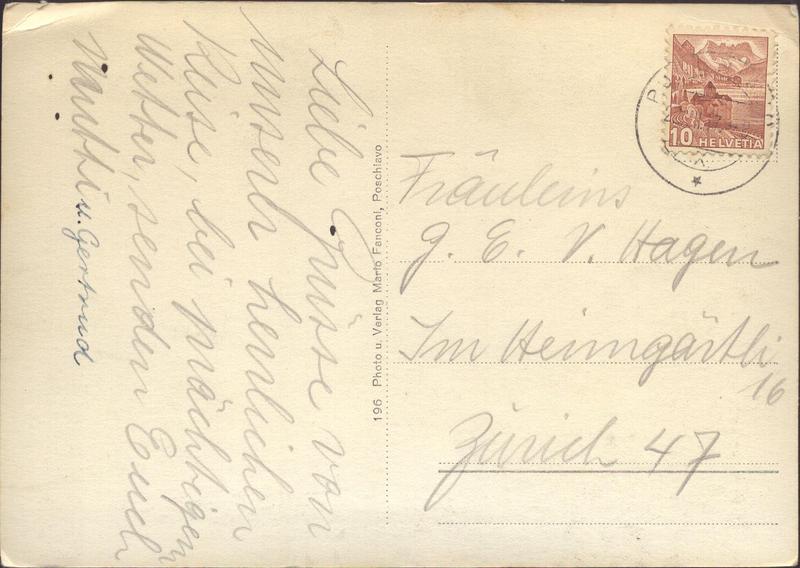 Liebe Grüsse von
unserer herrlichen
Reise, bei mächtigen
Wetter, senden Euch
u. Gertrud
196 Photo u. Verlag Mario Fanconi, Poschiavo
10 HELVETIA
Fräuleins
G. E. V. Hagen
Im Heimgärtli
16
Zürich 47